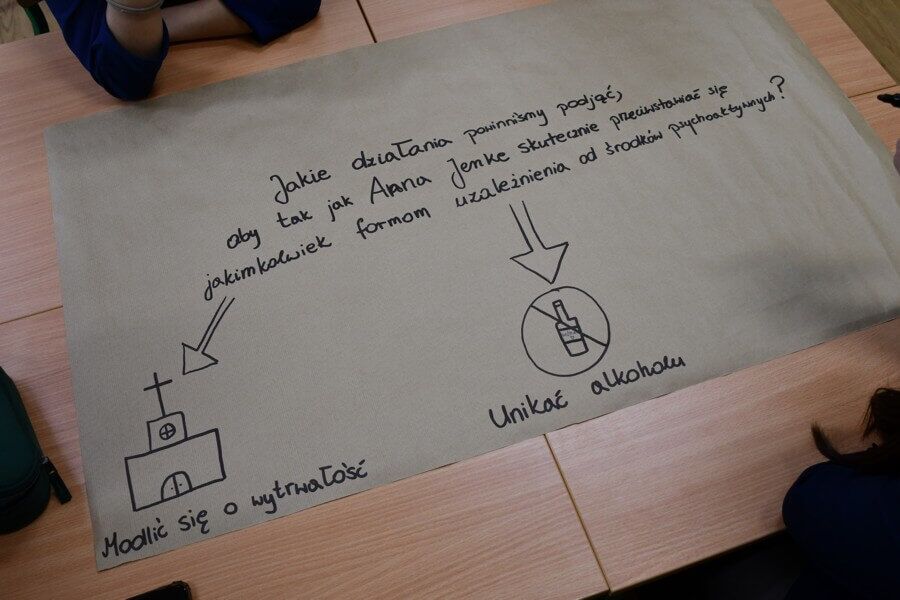 Jakie działania powinniśmy podjąć,
aby tak jak Anna Jenke skutecznie przeciwstawiać się
jakimkolwiek formom uzależnienia od środków psychoaktywnych?
Unikać alkoholu
Modlić się o wytrwałość